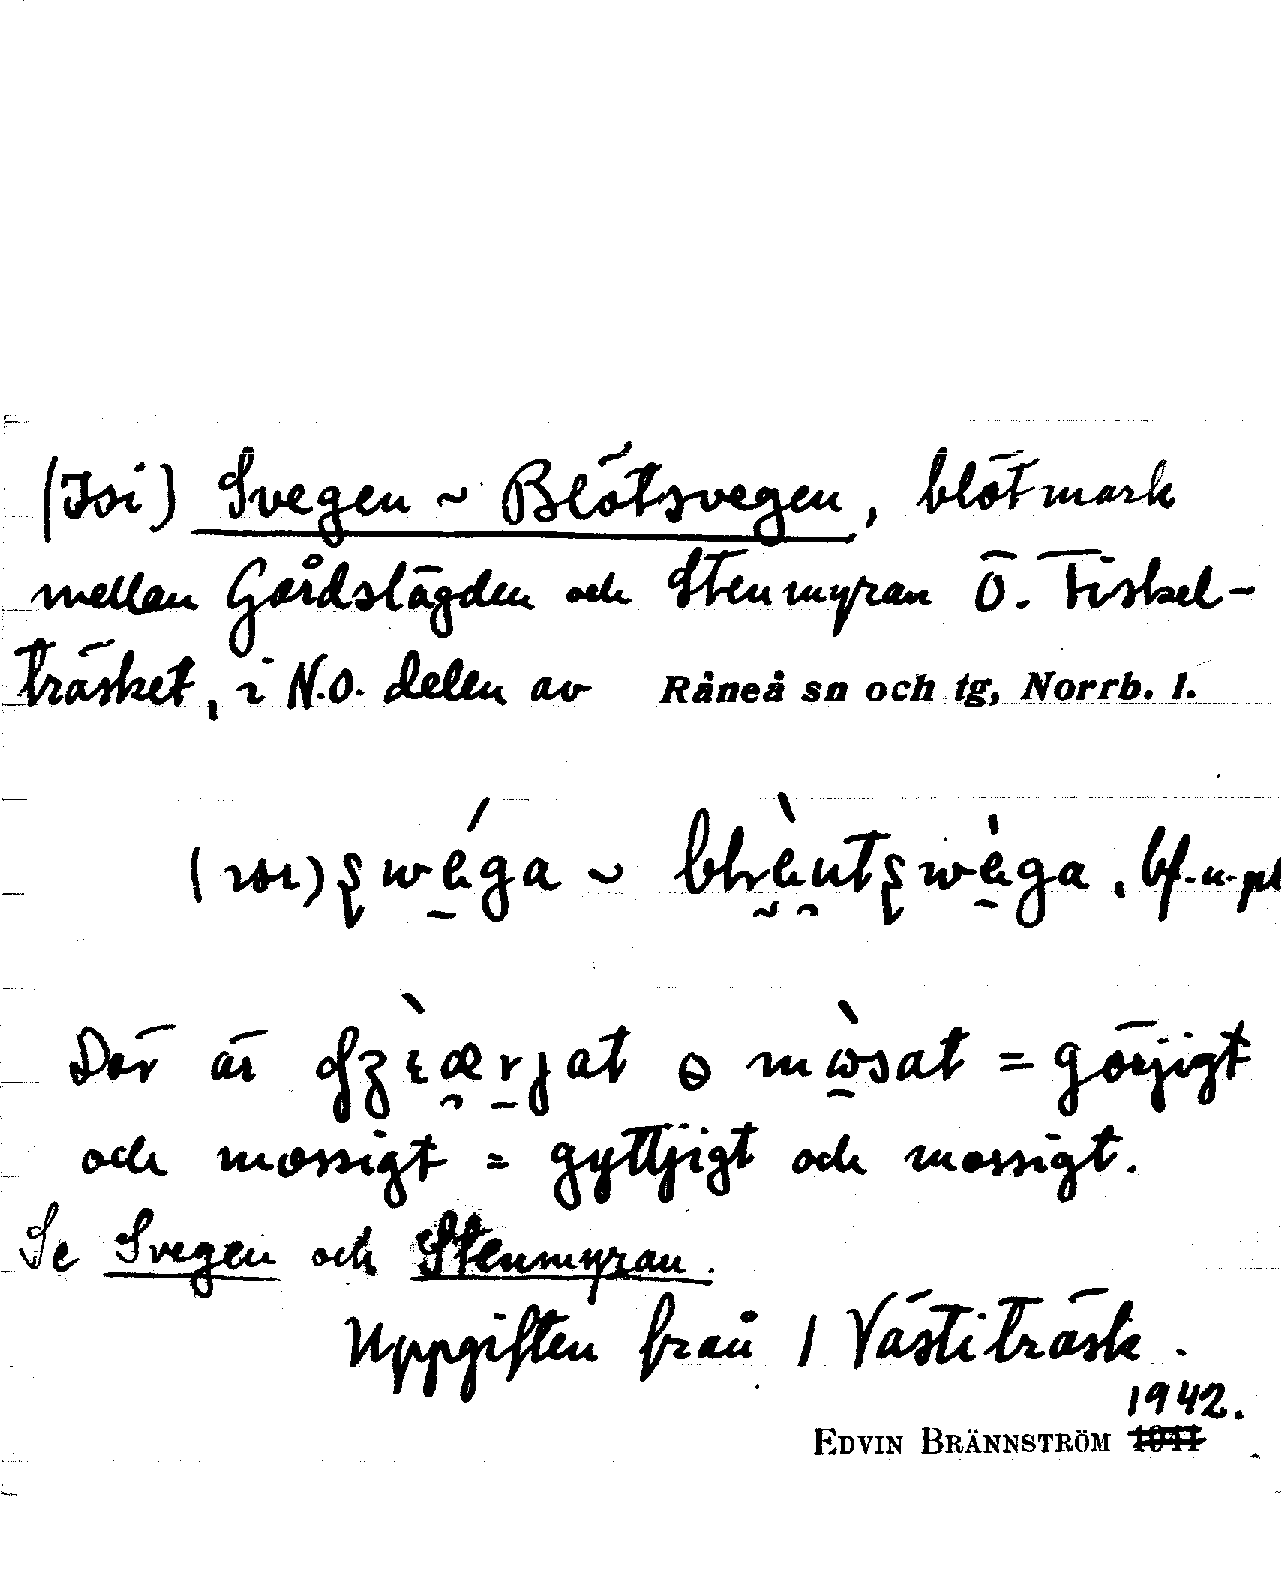 (Isi) Svegen ~ Blötsvegen, blötmark
mellan Gårdslägden och Stenmyran Ö. Fiskel-
träsket, i N.O. delen av Råneå sn och tg, Norrb. l.
bf. n. pl
Där är = görjigt
och mossigt = gyttjigt och mossigt.
Se Svegen och Stenmyran.
Uppgiften från 1 Västiträsk.
1942.
EDVIN BRÄNNSTRÖM 1941